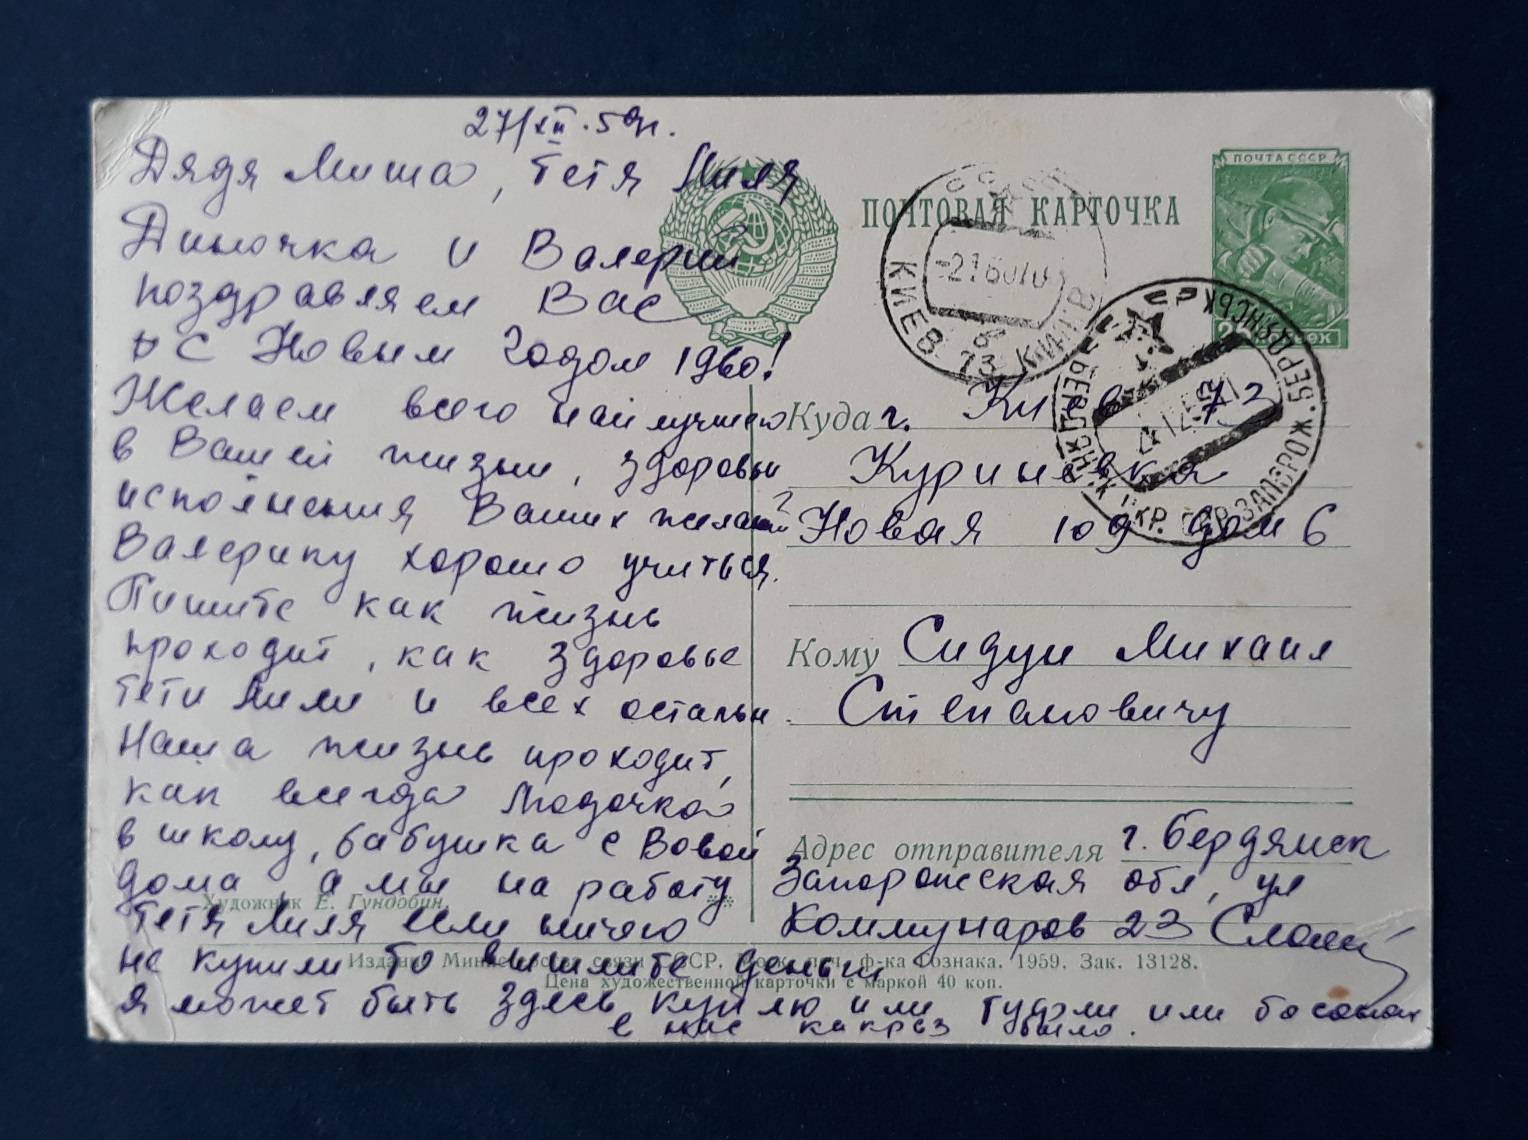 27/XII.59г.
Дядя Миша, тетя Миля
Диночка и Валерий
поздравляем Вас
с Новым Годом 1960!
Желаем всего найлучшего
в Вашей жизни, здоровья
исполнения Ваших желаний
Валерику хорошо учиться.
Пишите как жизнь
проходит, как здоровье
тети Мили и всех остальн.
Наша жизнь проходит,
как всегда
в школу, бабушка с Вовой
дома а мы на работу
тетя Миля если ничего
не купили то вышлите деньги
я может быть здесь куплю или туфли или
в нас как раз было.
ПОЧТА СССР
ПОЧТОВАЯ КАРТОЧКА
КИЕВ 73
БЕРДЯНСЬК
Куда г. Киев 73
Куриневка
Новая дом 6
Кому Михаил
Степановичу
Адрес отправителя г. Бердянск
Запорожская обл, ул
Коммунаров 23
Художник Е. Гундобин.
Издание Министерства связи СССР. Моск. печ. ф-ка Гознака. 1959. Зак. 13128.
Цена художественной карточки с маркой 40 коп.